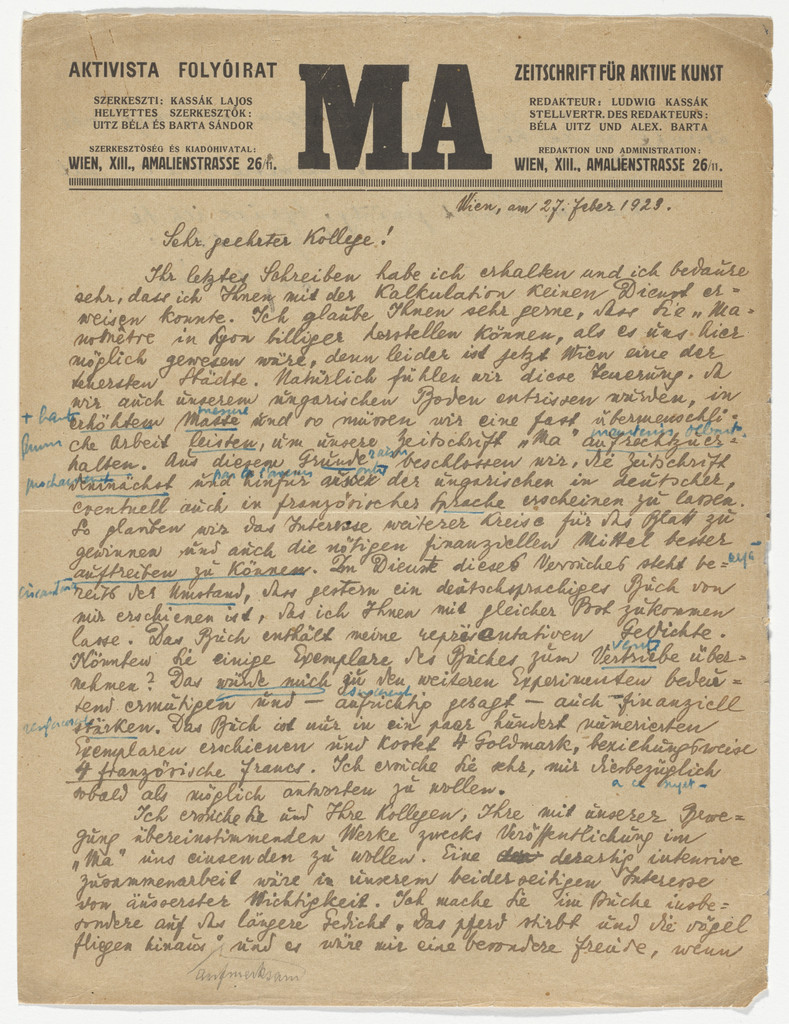 AKTIVISTA FOLYÓIRAT
SZERKESZTI: KASSÁK LAJOS
HELYETTES SZERKESZTŐK:
UITZ BÉLA ÉS BARTA SÁNDOR
SZERKESZTŐSÉG ÉS KIADÓHIVATAL:
WIEN, XIII., AMALIENSTRASSE 26/11.
MA
ZEITSCHRIFT FÜR AKTIVE KUNST
REDAKTEUR: LUDWIG KASSÁK
STELLVERTR. DES REDAKTEURS:
BÉLA UITZ UND ALEX. BARTA
REDAKTION UND ADMINISTRATION:
WIEN, XIII., AMALIENSTRASSE 26/11.
Wien, am 27. Feber 1923.
Sehr geehrter Kollege!
Ihr letztes Schreiben habe ich erhalten und ich bedaure
sehr, dass ich Ihnen mit der Kalkulation keinen Dienst er=
weisen konnte. Ich glaube Ihnen sehr gerne, dass Sie „Ma-
nomètre in Lyon billiger herstellen können, als es uns hier
möglich gewesen wäre, denn leider ist jetzt Wien eine der
teuersten Städte. Natürlich fühlen wir diese Teuerung, da
wir auch unserem ungarischen Boden entrissen wurden, in
+ haute mesure
erhöhtem Masse und so müssen wir eine fast übermenschli=
che Arbeit leisten, um unsere Zeitschrift „Ma" aufrechtzuer=
raison
halten. Aus diesem Grunde beschlossen wir, die Zeitschrift
demnächst und hinfür ausser der ungarischen in deutscher,
eventuell auch in französischer Sprache erscheinen zu lassen.
So glauben wir das Interesse weiterer Kreise für das Blatt zu
gewinnen und auch die nötigen finanziellen Mittel besser
auftreiben zu können. Im Dienste dieses Versuches steht be=
reits der Umstand, dass gestern ein deutschsprachiges Buch von
mir erschienen ist, das ich Ihnen mit gleicher Post zukommen
lasse. Das Buch enthält meine repräsentativen Gedichte.
vente
Könnten Sie einige Exemplare des Buches zum Vertriebe über=
nehmen? Das würde mich zu den weiteren Experimenten bedeu=
tend ermutigen und — aufrichtig gesagt — auch finanziell
stärken. Das Buch ist nur in ein paar hundert numerierten
Exemplaren erschienen und kostet 4 Goldmark, beziehungsweise
4 französische Francs. Ich ersuche Sie sehr, mir diesbezüglich
sobald als möglich antworten zu wollen.
Ich ersuche Sie und Ihre Kollegen, Ihre mit unserer Bewe=
gung übereinstimmenden Werke zwecks Veröffentlichung im
„Ma" uns einsenden zu wollen. Eine derartig intensive
Zusammenarbeit wäre in unserem beiderseitigen Interesse
von äusserster Wichtigkeit. Ich mache Sie im Buche insbe=
sondere auf das längere Gedicht „Das Pferd stirbt und die Vögel
fliegen hinaus" und es wäre mir eine besondere Freude, wenn
aufmerksam